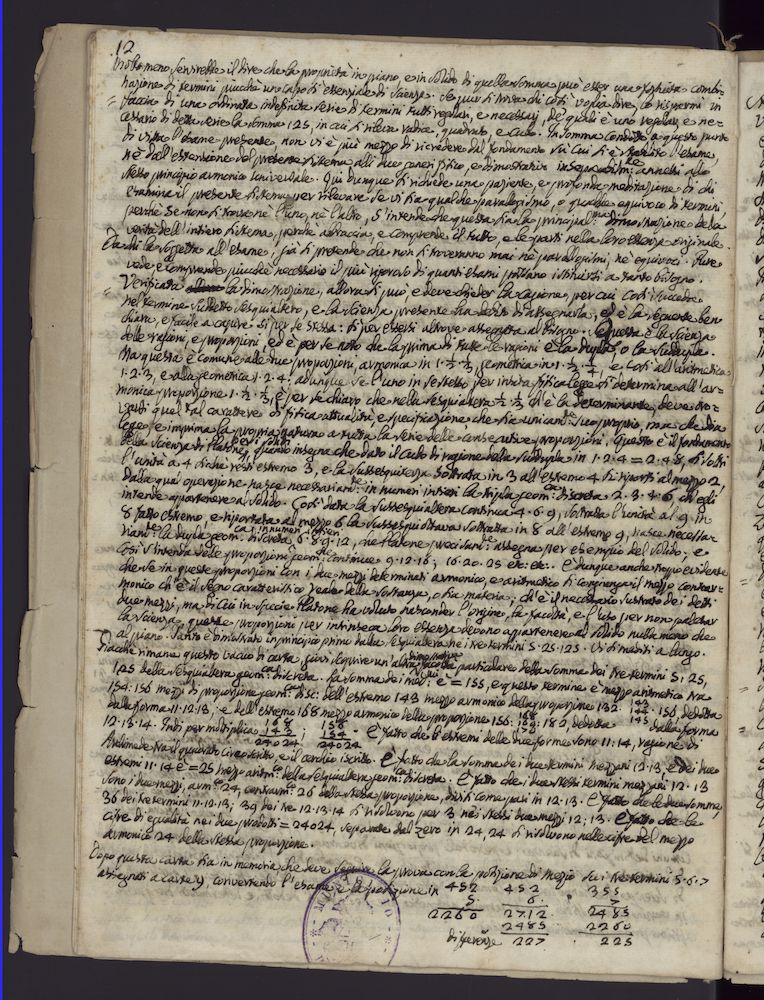 12
meno servirebbe il dire che la proprietà in piano, e in solido di quella somma può esser una fortuita combi=
nazione di termini piucchè un capo d'essenziale di Scienza. Se pur si trova chi così voglia dire, ci risparmi in
= faccia di una ordinata indefinita serie di termini tutti regolari, e necessarj, de' quali è uno regolar, e ne=
cessario di detta serie la somma 125, in cui si rileva radice, quadrato, e cubo. In somma condotto a questo punto
di vista l'esame presente, non vi è più mezzo di ricredere dal fondamento su cui si è istituito l'esame,
nè dall'estensione del presente sistema alli due generi fisico, e dimostrativo inseparabilm.te annessi allo
stesso principio armonico universale. Qui dunque si richiede una paziente, e profonda meditazione di chi
esamina il presente sistema per rilevare se vi sia qualche paralogismo, o qualche equivoco di termini,
perchè se non si trova nè l'uno, nè l'altro, s'intende che questa sia la principal dimostrazione della
verità dell'intiero sistema, perchè abbraccia, e comprende il tutto, e le parti nella loro essenza originale.
Da chi la soggetta all'esame già si pretende che non si troveranno mai nè paralogismi, nè equivoci. Pure
= vede e comprende piucchè necessario il più rigoroso di quanti esami possano istituirsi a tanto bisogno.
Verificata la dimostrazione, allora si può e deve chieder la cagione, per cui così succeda
nel termine suddetto sesquialtero, e la scienza presente ha debito di assegnarla; ed è la seguente ben
chiara, e facile a capire. Sì per se stessa: sì per essersi altrove assegnata al bisogno. Questa è la scienza
delle ragioni, e proporzioni, ed è per se noto che la prima di tutte le ragioni è la dupla, o la suddupla.
Ma questa è comune alle due proporzioni, armonica in 1. ½. ⅓, geometrica in 1. ½. ¼, e così all'aritmetica
1. 2. 3, e alla geometrica 1. 2. 4; adunque se l'uno in se stesso per intera fisica legge si determina all'ar=
monica proporzione 1. ½. ⅓, è per se chiaro che nella sesquialtera ½. ⅓ ch'è la determinante, deve tro=
varsi quel tal carattere di fisica attualità, e specificazione che sia unicam.te suo proprio, ma che dia
legge, e imprima la propria natura a tutta la serie delle consecutive proporzioni. Questo è il fondamento
della Scienza di Platone per i solidi, quando insegna che dato il cubo di ragione della suddupla in 1. 2. 4 = 2. 4. 8, si volti
l'unità a 4 sicchè resti estremo 3, e la sussesquiterza sottratta in 3 all'estremo 4 si riporti al mezzo 2,
dalla qual operazione nasce necessariam.te in numeri intieri la tripla geom.ca discreta 2. 3. 4. 6, ch'egli
intende appartenere a solido. Così data la sussesquialtera continua 4. 6. 9, sottratta l'unità al 9 in
8 fatto estremo, e riportata al mezzo 6 la sussesquiottava sottratta in 8 all'estremo 9, nasce necessar=
riam.te in numeri intieri la dupla geom.ca discreta 6. 8. 9. 12, che Platone precisam.te assegna per esempio del solido, e
così s'intenda delle proporzioni geom.che continue 9. 12. 16; 16. 20. 25 etc: etc:. È dunque anche troppo evidente
che se in queste proporzioni con i due mezzi determinati armonico, e aritmetico si congiunga il mezzo contrar=
monico ch'è il segno caratteristico reale della sostanza, o sia materia; ch'è il necessario sustrato dei detti
due mezzi, ma di cui in specie Platone ha voluto nasconder l'origine, la facoltà, e l'uso per non palesar
la Scienza, queste proporzioni per intrinseca loro essenza devono appartenere al solido nulla meno che
al piano. Tanto è dimostrato in principio primo dalla sesquialtera nei tre termini 5. 25. 125. Vi si mediti a lungo.
Giacchè rimane questo vacuo di carta, giovi seguire un'altra dimostrativa facoltà particolare della somma dei tre termini 5, 25,
125 della sesquialtera geom.ca discreta. La somma dei med.mi è = 155, e questo termine è mezzo aritmetico tra
154. 156 mezzi di proporzione geom.ca disc: dell'estremo 143 mezzo armonico della proporzione 132. 143/144. 156, dedotta
dalla forma 11. 12. 13; e dell'estremo 168 mezzo armonico della proporzione 156. 168/169/170. 182, dedotta dalla forma
12. 13. 14. Indi per multiplica 168 143 24024; 156 154 24024. È fatto che gl'estremi delle due forme sono 11. 14, ragione di
Archimede tra il quadrato circoscritto, e il cerchio iscritto. È fatto che la somma dei due termini mezzani 12. 13, e dei due
estremi 11. 14 è = 25 mezzo aritm.co della sesquialtera geom.ca discreta. È fatto che i due stessi termini mezzani 12. 13
sono i due mezzi, arm.co 24, contrarm.co 26 della stessa proporzione, divisi come pari in 12. 13. È fatto che le due somme,
36 dei tre termini 11. 12. 13; 39 dei tre 12. 13. 14 si risolvono per 3 nei stessi due mezzi 12; 13. È fatto che le
cifre di egualità nei due prodotti = 24024, separate dal zero in 24, 24 si risolvono nelle cifre del mezzo
armonico 24 della stessa proporzione.
Dopo questa carta sia in memoria che deve seguire la prova con la posizione di mezzo dei tre termini 5. 6. 7
assegnati a carte 9, convertendo l'esame, e la posizione in 452 452 355
5. 6. 7
2260 2712. 2485
2485 2260
differenze 227 . 225